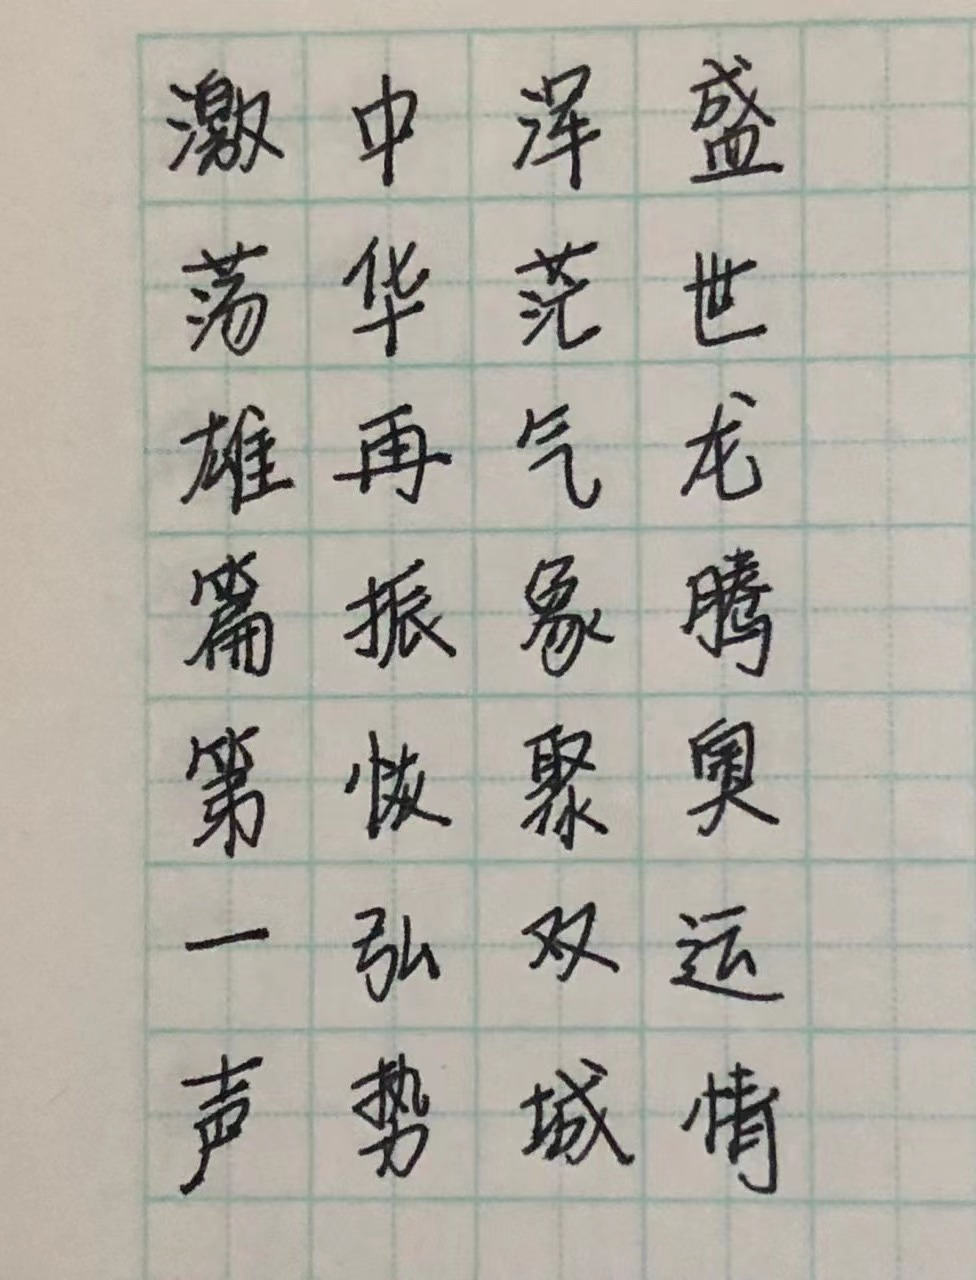 盛世龙腾奥运情
浑茫气象聚双城
中华再振恢弘势
激荡雄篇第一声